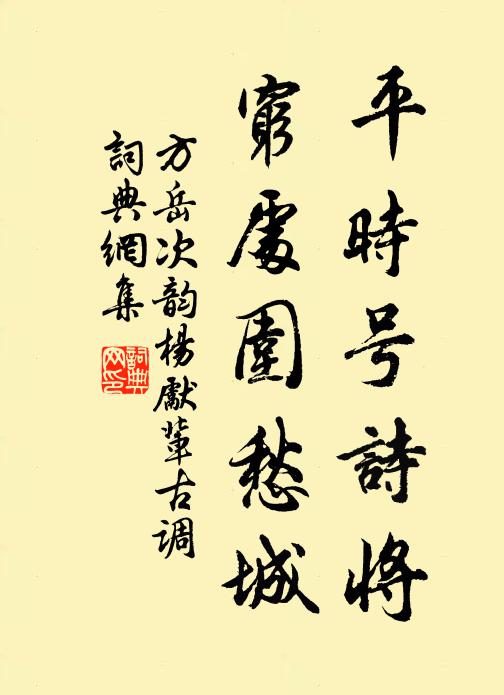 平時号詩將
窮處圍愁城
方岳次韵楊獻輩古调
詞典網集
詞典网印